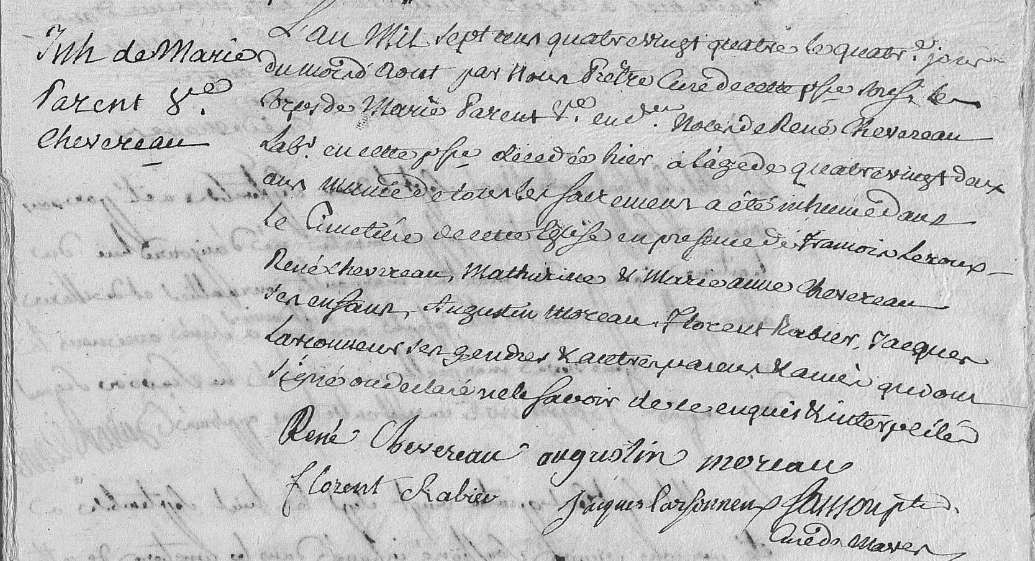 Inh de Marie
Parent Ve
Chevereau
L'an Mil sept cens quatrevingt quatre le quatre. jour
du mois d'Aout par Nous Prêtre Curé de cette psse souss. le
Corps de Marie Parent Ve. en dres Noces de René Chevereau
Labr. en cette psse décedée hier, à l'age de quatrevingt deux
ans munie de tous les sacremens a été inhumé dans
le Cimetiére de cette Eglise en presence de Francois Leroux
René Chevereau, Mathurine & Marie anne Chevereau
ses enfans, Augustin Moreau, Florent Rabier, Jacques
Larsonneur ses gendres & autres parens & amis qui ont
signé ou declaré ne le savoir de ce enquis & interpellés
René Chevereau augustin moreau
florent Rabier Jaques Larsonneur
Curé de